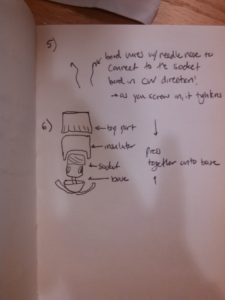 5)
bend wires w/ needle nose to
connect to the socket
bend in CW direction!
→ as you screw on, it tightens
6)
top part
insulator
socket
base
press
together onto base